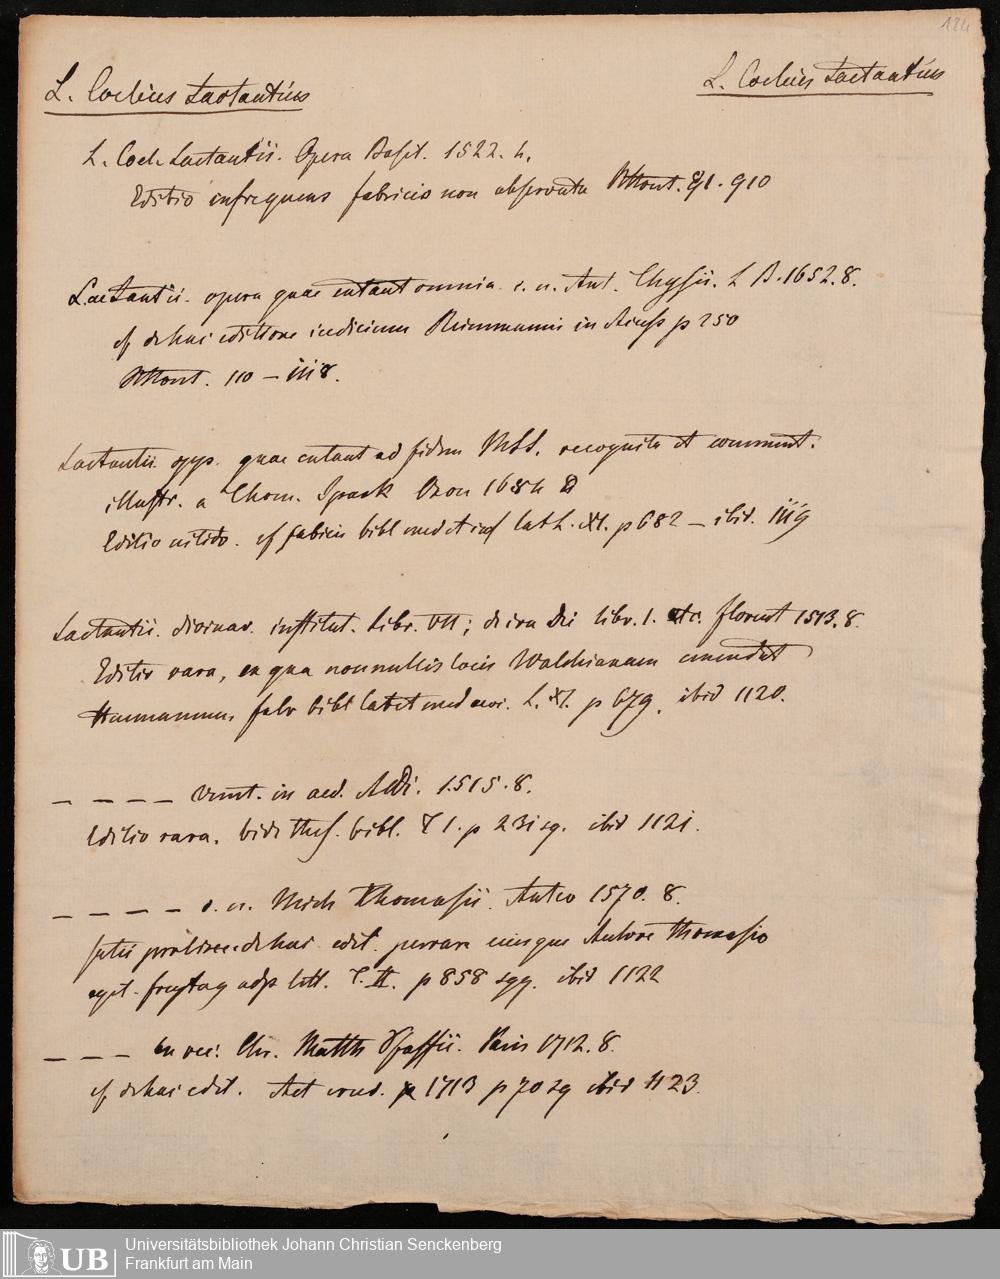 184
L. Coelius Lactantius
L. Coelius Lactantius
L. Coel. Lactantii. Opera Basil. 1522. 4.
Editio infrequens Fabricio non observata 910
Lactantii. opera quae extant omnia c. n. Ant. Thysii. L B. 1652. 8.
cf de hac editione iudicium Reimmanni in p 250
110 – 1118.
Lactantii opp. quae extant ad fidem MSS. recognita et comment.
illustr. a Thom. Spark Oxon 1684 8
Editio nitida. cf Fabricii bibl med et inf lat L. XI. p 682 – ibid. 1119
Lactantii. divinar. institut. Libr. VII; de ira Dei libr. 1. etc. Florent 1513. 8.
Editio rara, ex qua nonnullis locis Walchianam emendat
Heumannus. Fabr bibl lat et med aevi. L. XI. p 679. ibid 1120.
– – – – Venet. in aed. Aldi. 1515. 8.
Editio rara. vide thes. bibl. T 1. p 231 sq. ibid 1121.
– – – – c. n. Mich Thomasii. Antw 1570. 8.
de hac edit. perrara eiusque Autore Thomasio
Freytag adp litt. T. II. p 858 sqq. ibid 1122
– – – ex rec: Chr. Matth Pfaffii. Paris 1712. 8.
cf de hac edit. Act erud. 1713 p 70 sq ibid 1123.
UB
Universitätsbibliothek Johann Christian Senckenberg
Frankfurt am Main